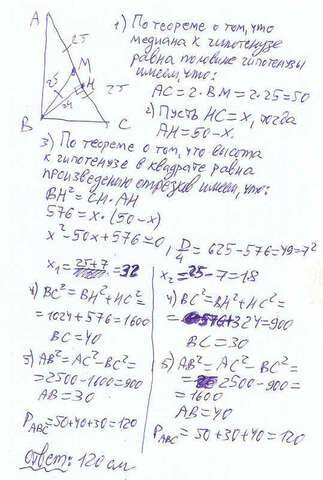 A
25
M
H
25
25
24
B
C
1) По теореме о том, что
медиана к гипотенузе
равна половине гипотенузы
имеем, что:
AC = 2·BM = 2·25 = 50
2) Пусть HC = x, тогда
AH = 50 - x.
3) По теореме о том, что высота
к гипотенузе в квадрате равна
произведению отрезков имеем, что:
BH² = CH·AH
576 = x·(50-x)
x² - 50x + 576 = 0, D/4 = 625 - 576 = 49 = 7²
x₁ = 25+7 = 32
4) BC² = BH² + HC² =
= 1024 + 576 = 1600
BC = 40
5) AB² = AC² - BC² =
= 2500 - 1600 = 900
AB = 30
P_ABC = 50+40+30 = 120
x₂ = 25 - 7 = 18
4) BC² = BH² + HC² =
= 576 + 324 = 900
BC = 30
5) AB² = AC² - BC² =
= 2500 - 900 =
= 1600
AB = 40
P_ABC = 50+30+40 = 120
Ответ: 120 см